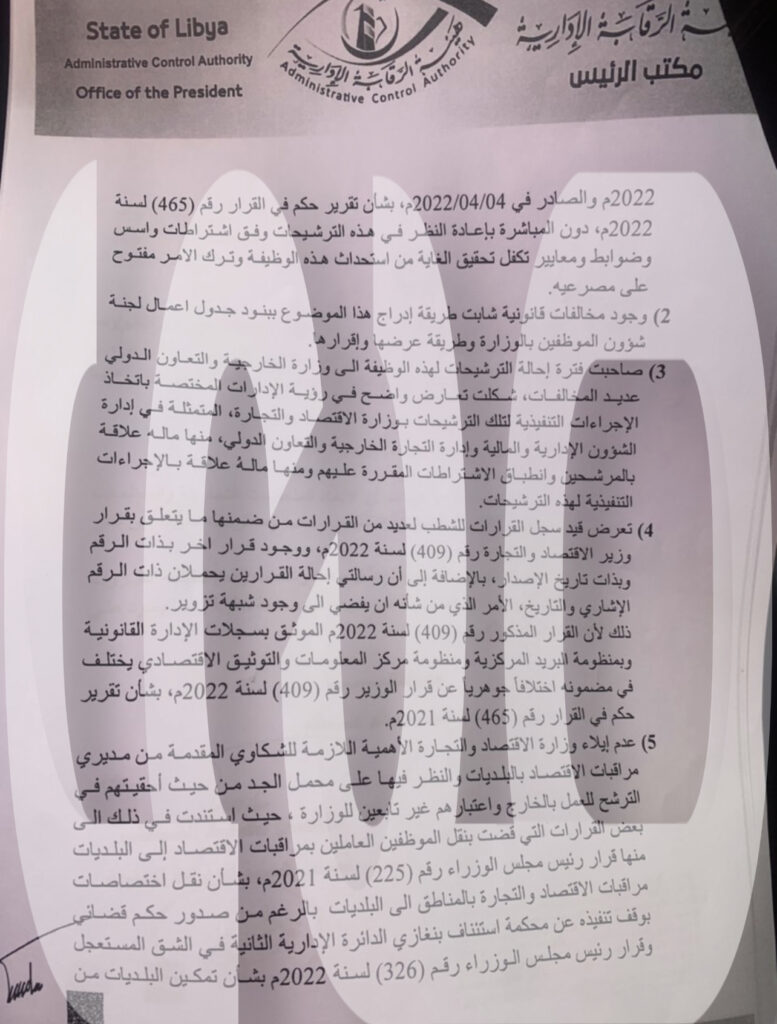 State of Libya
Administrative Control Authority
Office of the President
هيئة الرقابة الإدارية
Administrative Control Authority
الرقابة الإدارية
مكتب الرئيس
2022م والصادر في 2022/04/04م، بشأن تقرير حكم في القرار رقم (465) لسنة
2022م، دون المباشرة بإعادة النظر في هذه الترشيحات وفق اشتراطات واسس
وضوابط ومعايير تكفل تحقيق الغاية من استحداث هذه الوظيفة وترك الامر مفتوح
على مصرعيه.
2) وجود مخالفات قانونية شابت طريقة إدراج هذا الموضوع ببنود جدول اعمال لجنة
شؤون الموظفين بالوزارة وطريقة عرضها وإقرارها.
3) صاحبت فترة إحالة الترشيحات لهذه الوظيفة الى وزارة الخارجية والتعاون الدولي
عديد المخالفات، شكلت تعارض واضح في رؤية الإدارات المختصة باتخاذ
الإجراءات التنفيذية لتلك الترشيحات بوزارة الاقتصاد والتجارة، المتمثلة في إدارة
الشؤون الإدارية والمالية وإدارة التجارة الخارجية والتعاون الدولي، منها ماله علاقة
بالمرشحين وانطباق الاشتراطات المقررة عليهم ومنها مالهُ علاقة بالإجراءات
التنفيذية لهذه الترشيحات.
4) تعرض قيد سجل القرارات للشطب لعديد من القرارات من ضمنها ما يتعلق بقرار
وزير الاقتصاد والتجارة رقم (409) لسنة 2022م، ووجود قرار اخر بذات الرقم
وبذات تاريخ الإصدار، بالإضافة إلى أن رسالتي إحالة القرارين يحملان ذات الرقم
الإشاري والتاريخ، الأمر الذي من شأنه ان يفضي الى وجود شبهة تزوير.
ذلك لأن القرار المذكور رقم (409) لسنة 2022م الموثق بسجلات الإدارة القانونية
وبمنظومة البريد المركزية ومنظومة مركز المعلومات والتوثيق الاقتصادي يختلف
في مضمونه اختلافاً جوهرياً عن قرار الوزير رقم (409) لسنة 2022م، بشأن تقرير
حكم في القرار رقم (465) لسنة 2021م.
5) عدم إيلاء وزارة الاقتصاد والتجارة الأهمية اللازمة للشكاوي المقدمة من مديري
مراقبات الاقتصاد بالبلديات والنظر فيها على محمل الجد من حيث أحقيتهم في
الترشح للعمل بالخارج واعتبارهم غير تابعين للوزارة ، حيث استندت في ذلك الى
بعض القرارات التي قضت بنقل الموظفين العاملين بمراقبات الاقتصاد إلى البلديات
منها قرار رئيس مجلس الوزراء رقم (225) لسنة 2021م، بشأن نقل اختصاصات
مراقبات الاقتصاد والتجارة بالمناطق الى البلديات بالرغم من صدور حكم قضائي
بوقف تنفيذه عن محكمة استئناف بنغازي الدائرة الإدارية الثانية في الشق المستعجل
وقرار رئيس مجلس الوزراء رقم (326) لسنة 2022م بشأن تمكين البلديات من